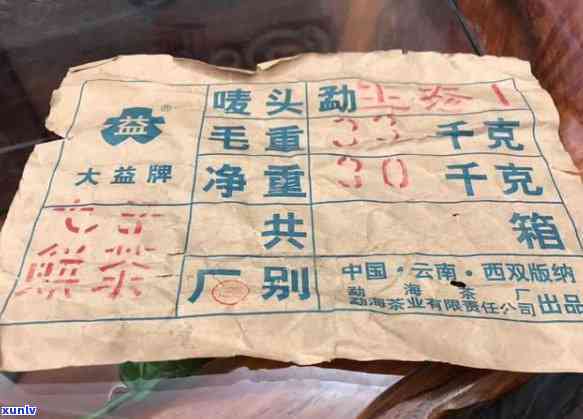 益®
大益牌
七子
饼茶
唛头 勐
毛重 33 千克
净重 30 千克
共 箱
厂别
中国·云南·西双版纳
勐海茶厂
勐海茶业有限责任公司 出品
xunlv